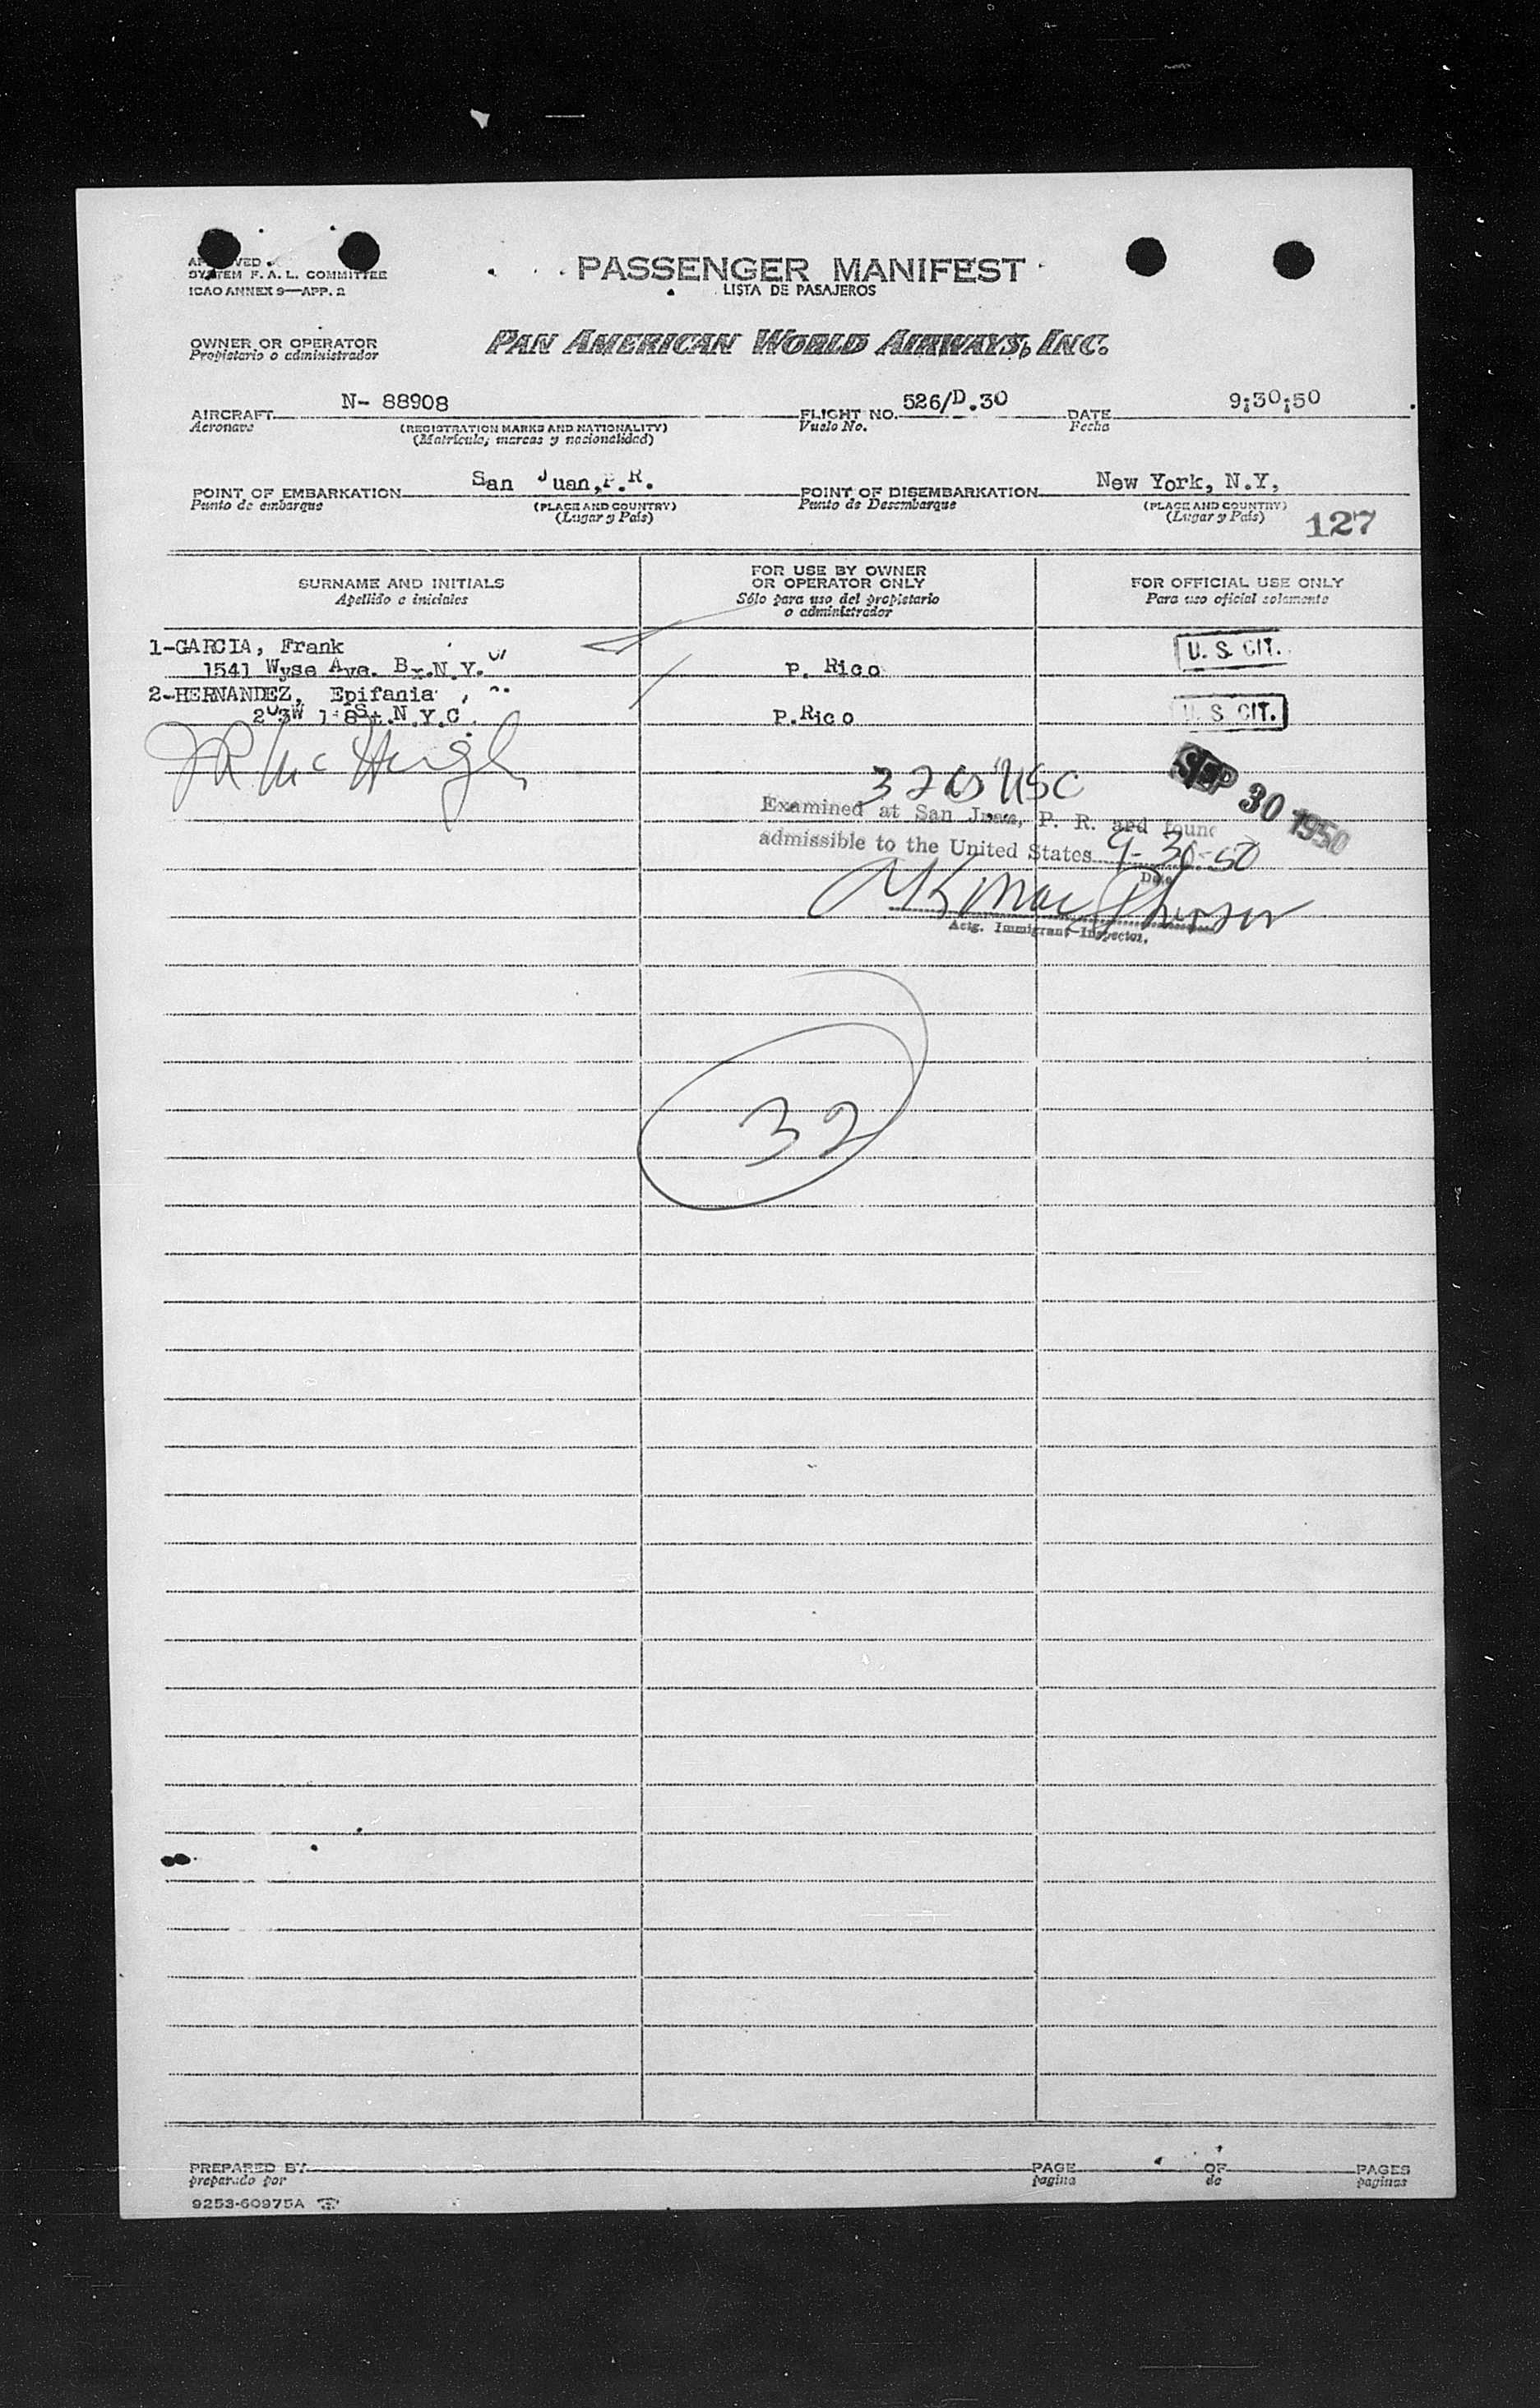 APPROVED
SYSTEM F. A. L. COMMITTEE
ICAO ANNEX 9—APP. 2
PASSENGER MANIFEST
LISTA DE PASAJEROS
OWNER OR OPERATOR
Propietario o administrador
PAN AMERICAN WORLD AIRWAYS, INC.
AIRCRAFT N- 88908 FLIGHT NO. 526/D.30 DATE 9;30;50
Aeronave (REGISTRATION MARKS AND NATIONALITY) Vuelo No. Fecha
(Matrícula, marcas y nacionalidad)
POINT OF EMBARKATION San Juan,P.R. POINT OF DISEMBARKATION New York, N.Y,
Punto de embarque (PLACE AND COUNTRY) Punto de Desembarque (PLACE AND COUNTRY)
(Lugar y País) (Lugar y País) 127
SURNAME AND INITIALS
Apellido e iniciales
FOR USE BY OWNER
OR OPERATOR ONLY
Sólo para uso del propietario
o administrador
FOR OFFICIAL USE ONLY
Para uso oficial solamente
1-GARCIA, Frank
1541 Wyse Ave. Bx.N.Y. P. Rico U. S. CIT.
2-HERNANDEZ, Epifania
St. N.Y.C. P.Rico U. S. CIT.
J R McHugh
32 USC
SEP 30 1950
Examined at San Juan, P. R. and found
admissible to the United States 9-30-50
Date
MacPherson
Actg. Immigrant Inspector.
32
PREPARED BY PAGE OF PAGES
preparado por pagina de paginas
9253-60975A